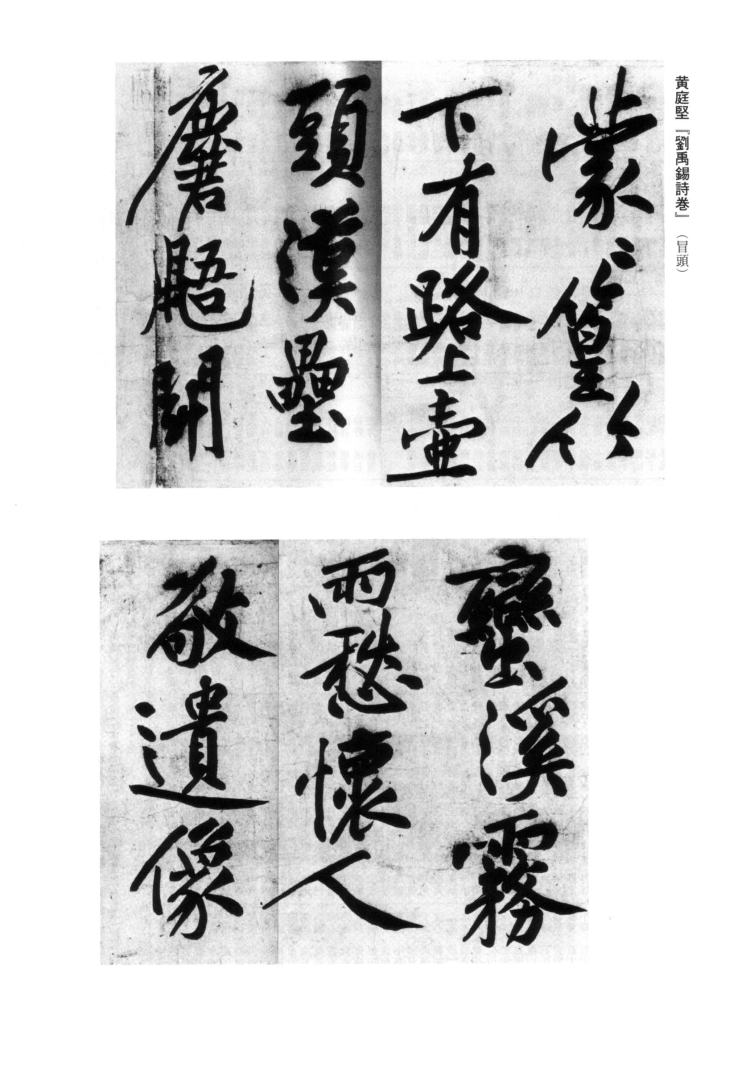 黄庭堅『劉禹錫詩巻』（冒頭）
蒙〻篁竹
下有路上壺
頭漢壘
麏鼯鬥
蠻溪霧
雨愁懷人
敬遺像